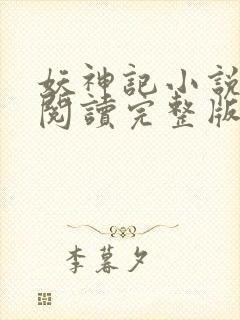 妖神記小說
閱讀完整版
李暮夕